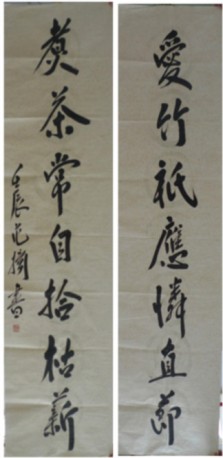 愛竹祇應憐直節
煑茶常自拾枯薪
壬辰 書